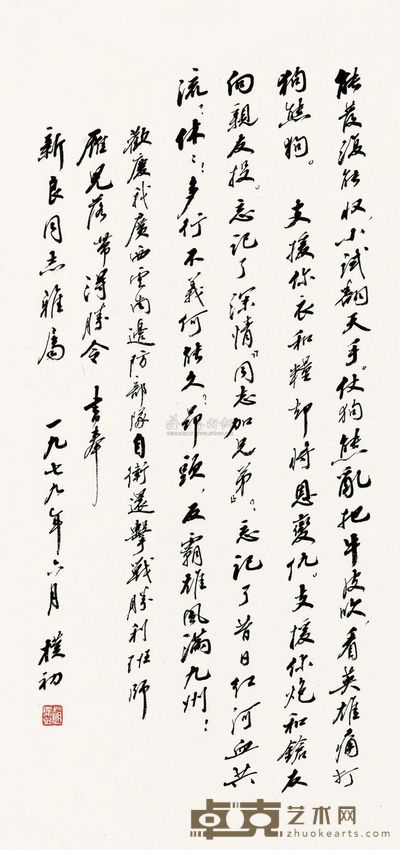 能发复能收，小试翻天手。仗狗熊乱把牛皮吹，看英雄痛打
狗熊狗。　支援你衣和糧却将恩变仇。支援你炮和鎗反
向親友投。忘记了深情“同志加兄弟”。忘记了昔日红河血共
流，休休！多行不義何能久？昂頭，反霸雄風满九州！
歡慶我廣西雲南邊防部隊自衛還擊戰勝利班師
雁兒落带得勝令　书奉
新良同志雅属　一九七九年六月　樸初
卓克艺术网
zhuokearts.com